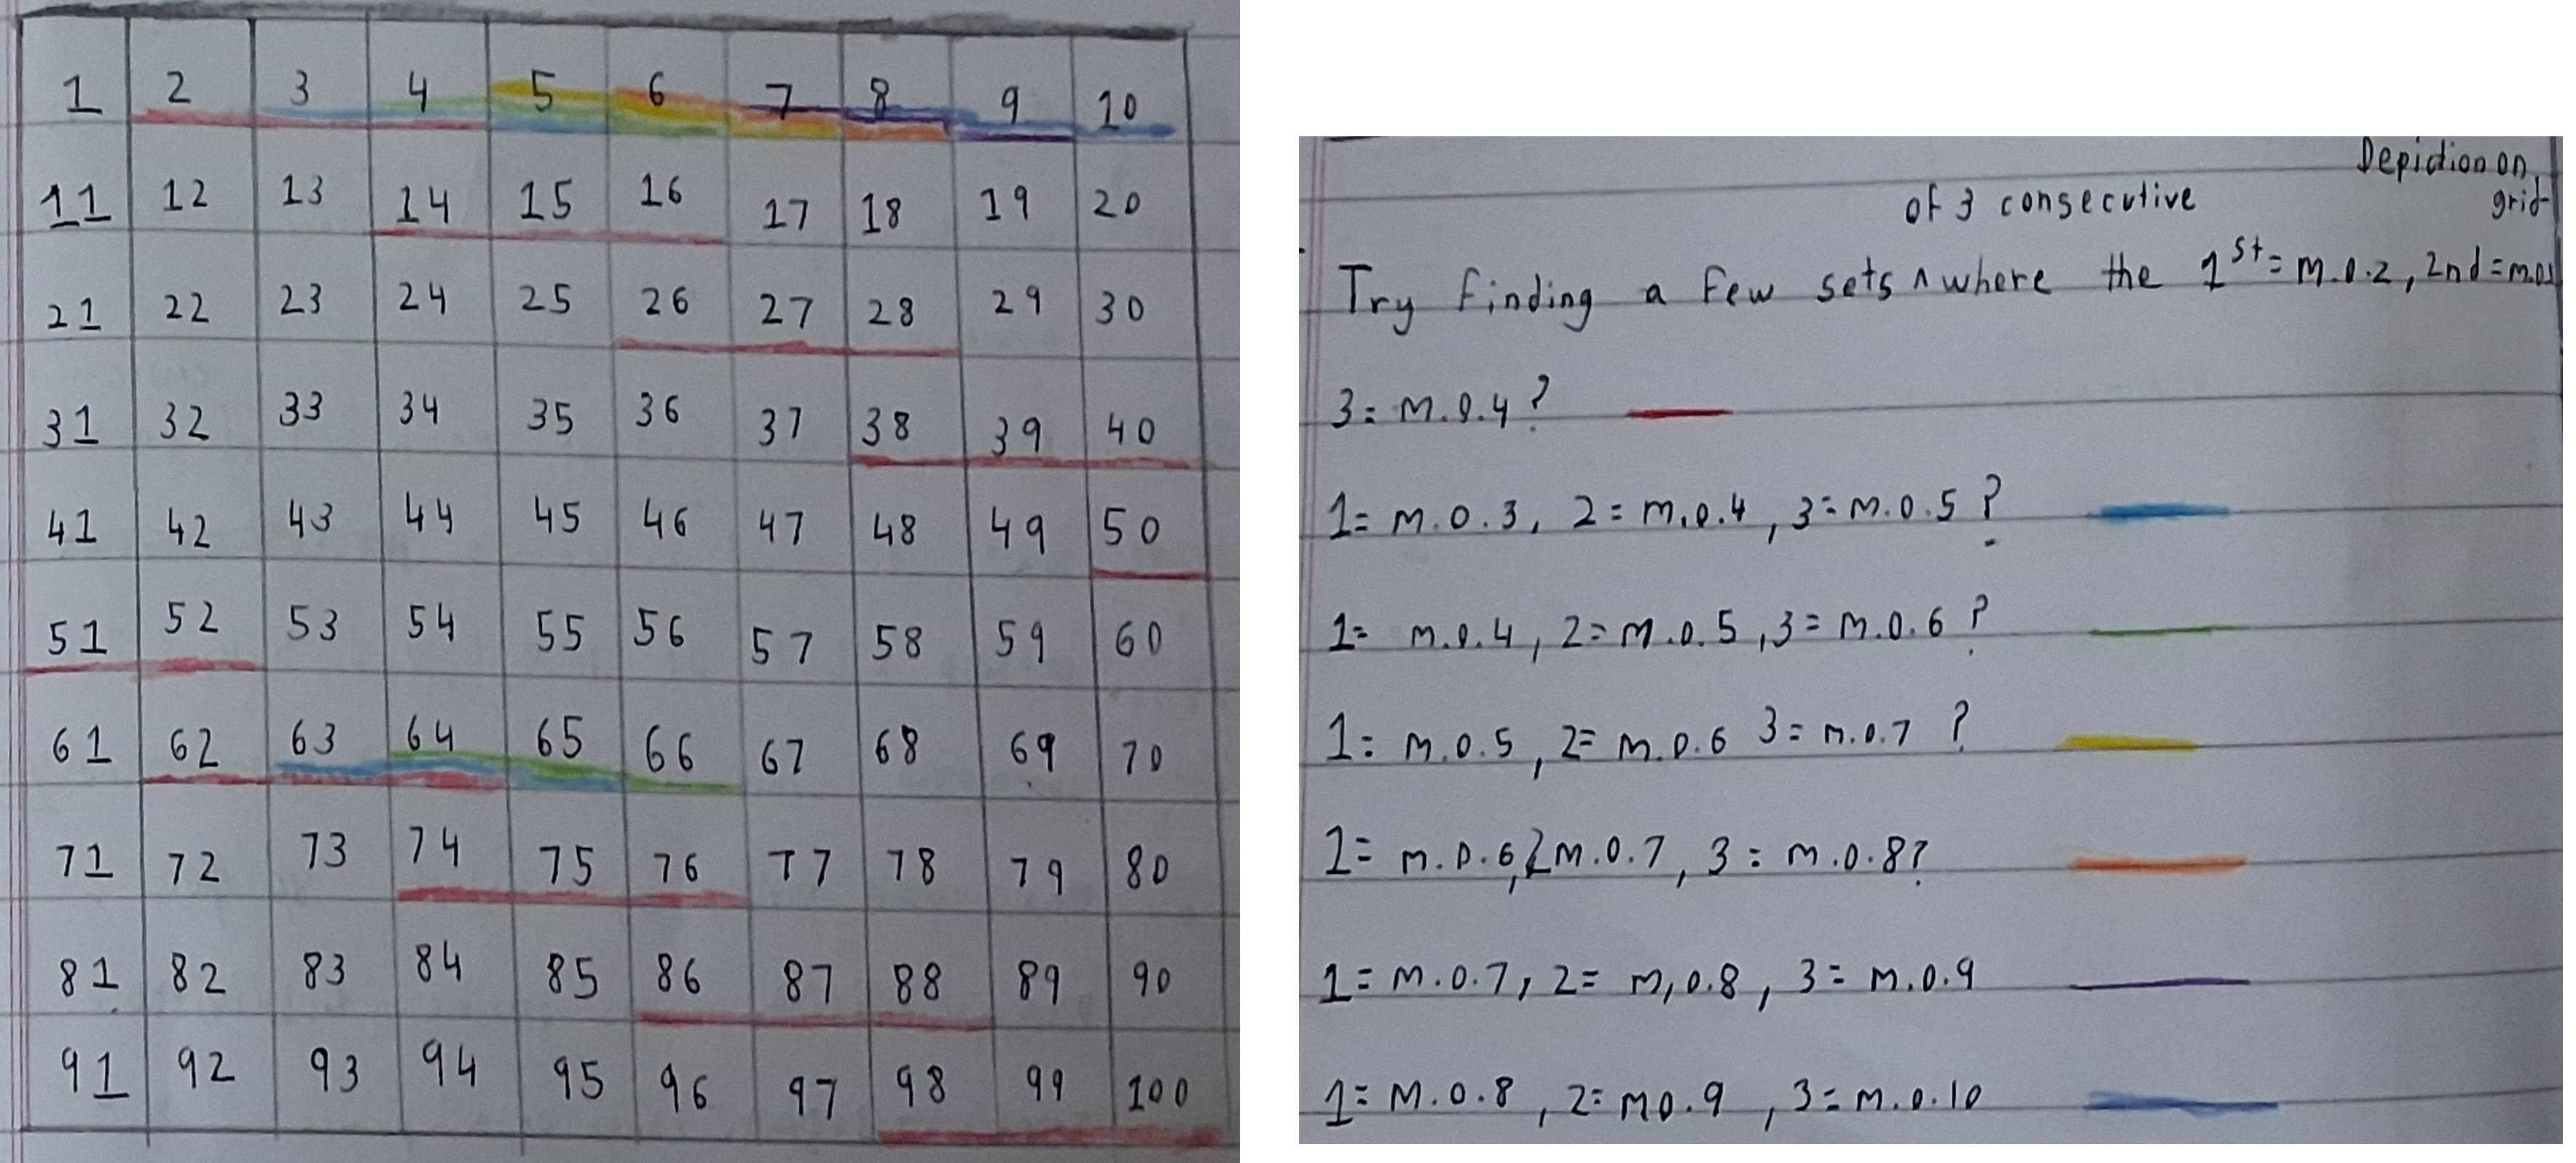 1 2 3 4 5 6 7 8 9 10
11 12 13 14 15 16 17 18 19 20
21 22 23 24 25 26 27 28 29 30
31 32 33 34 35 36 37 38 39 40
41 42 43 44 45 46 47 48 49 50
51 52 53 54 55 56 57 58 59 60
61 62 63 64 65 66 67 68 69 70
71 72 73 74 75 76 77 78 79 80
81 82 83 84 85 86 87 88 89 90
91 92 93 94 95 96 97 98 99 100
Depiction on
of 3 consecutive grid
Try finding a few sets ^ where the 1st = m.o.2, 2nd = m.o.
3 = m.o.4?
1 = m.o.3, 2 = m.o.4, 3 = m.o.5?
1 = m.o.4, 2 = m.o.5, 3 = m.o.6?
1 = m.o.5, 2 = m.o.6 3 = m.o.7 ?
1 = m.o.6, 2 m.o.7, 3 = m.o.8?
1 = m.o.7, 2 = m.o.8, 3 = m.o.9
1 = m.o.8, 2 = mo.9, 3 = m.o.10